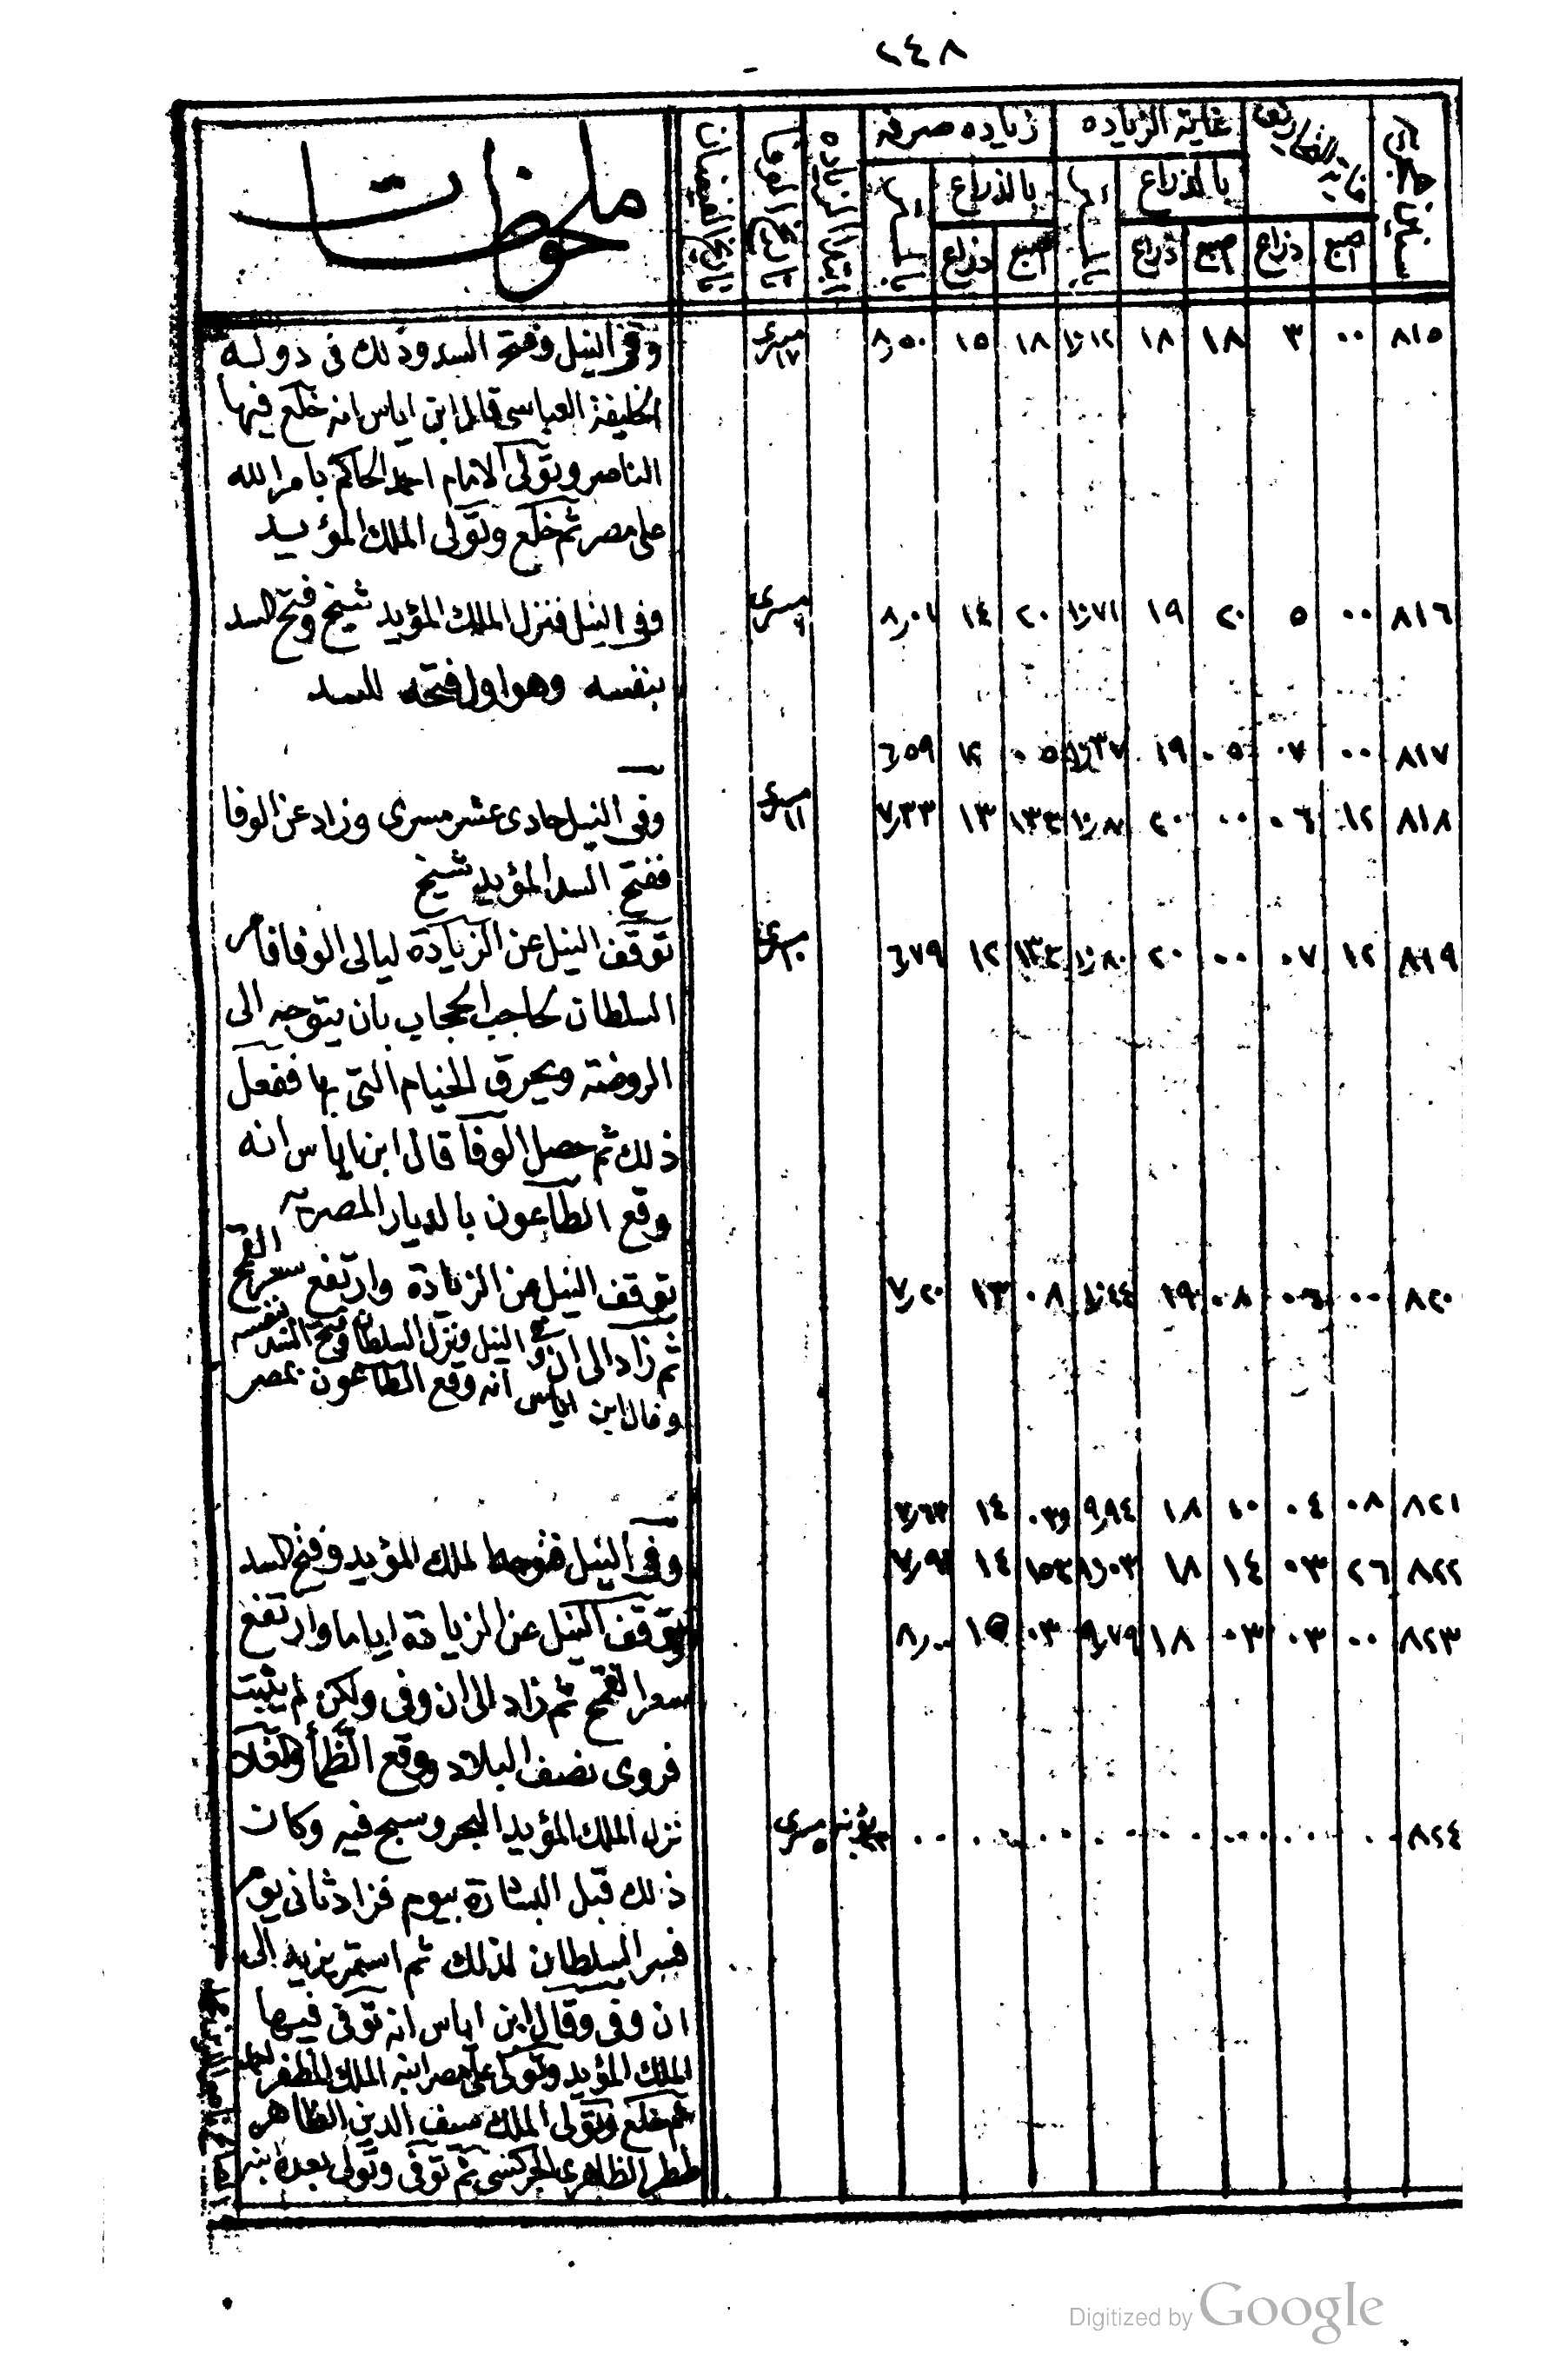 ٢٤٨
سنين هلالية
غاية التحاريق
غاية الزياده
زياده صرفه
ابتدا الزياده
تاريخ الوفا
تاريخ الفيضان
ملحوظات
بالذراع
بالذراع
اصبع
ذراع
اصبع
ذراع
اصبع
ذراع
٨١٥ ٠٠ ٣ ١٨ ١٨ ١٠,١٢ ١٨ ١٥ ٨,٥٠ مسرى ١٧
وفى النيل وفتح السد وذلك فى دولة
الخليفة العباسى قال ابن اياس انه خلع فيها
الناصر وتولى الامام احمد الحاكم بامر الله
على مصر ثم خلع وتولى الملك المؤيد
٨١٦ ٠٠ ٥ ٢٠ ١٩ ١٠,٧١ ٢٠ ١٤ ٨,٠١ مسرى
وفى النيل فنزل الملك المؤيد شيخ وفتح السد
بنفسه وهو اول فتحه للسد
٨١٧ ٠٠ ٠٧ ٠٥ ١٩ ١٠,٣٧ ٠٥ ١٢ ٦,٥٩
٨١٨ ١٢ ٠٦ ٠٠ ٢٠ ١٠,٨٠ ١٣ ٧,٣٣ مسرى ١١
وفى النيل حادى عشر مسرى وزاد عن الوفا
ففتح السد المؤيد شيخ
٨١٩ ١٢ ٠٧ ٠٠ ٢٠ ١٠,٨٠ ١٢ ٦,٧٩ مسرى ١٠
توقف النيل عن الزيادة ليالى الوفا فامر
السلطان لحاجب الحجاب بان يتوجه الى
الروضة ويحرق الخيام التى بها ففعل
ذلك ثم حصل الوفا قال ابن اياس انه
وقع الطاعون بالديار المصرية
٨٢٠ ٠٠ ٠٦ ٠٨ ١٩ ١٠,٤٤ ٠٨ ١٣ ٧,٢٠
توقف النيل عن الزيادة وارتفع سعر القمح
ثم زاد الى ان وفى النيل ونزل السلطان وفتح السد بنفسه
وقال ابن اياس انه وقع الطاعون بمصر
٨٢١ ٠٨ ٠٤ ١٠ ١٨ ٩,٩٤ ١٤ ٧,٦٣
٨٢٢ ٢٦ ٠٣ ١٤ ١٨ ١٠,٠٣ ١٤
وفى النيل فتوجه الملك المؤيد وفتح السد
٨٢٣ ٠٠ ٠٣ ٠٣ ١٨ ٩,٧٩ ٠٣ ١٥ ٨,٠٠
توقف النيل عن الزيادة اياما وارتفع
سعر القمح ثم زاد الى ان وفى ولكن لم يثبت
فروى نصف البلاد ووقع الظمأ والغلاء
٨٢٤ ٠٠ ٠٠ ٠٠ ٠٠ ٠٠ ٠٠ ٠٠ ٠٠ بؤنه مسرى ٥
نزل الملك المؤيد البحر وسبح فيه وكان
ذلك قبل البشارة بيوم فزاد ثانى يوم
فسر السلطان لذلك ثم استمر يزيد الى
ان وفى وقال ابن اياس انه توفى فيها
الملك المؤيد وتولى على مصر ابنه الملك المظفر احمد
ثم خلع وتولى الملك سيف الدين الظاهر
ططر الظاهرى الجركسى ثم توفى وتولى بعده ابنه
Digitized by Google